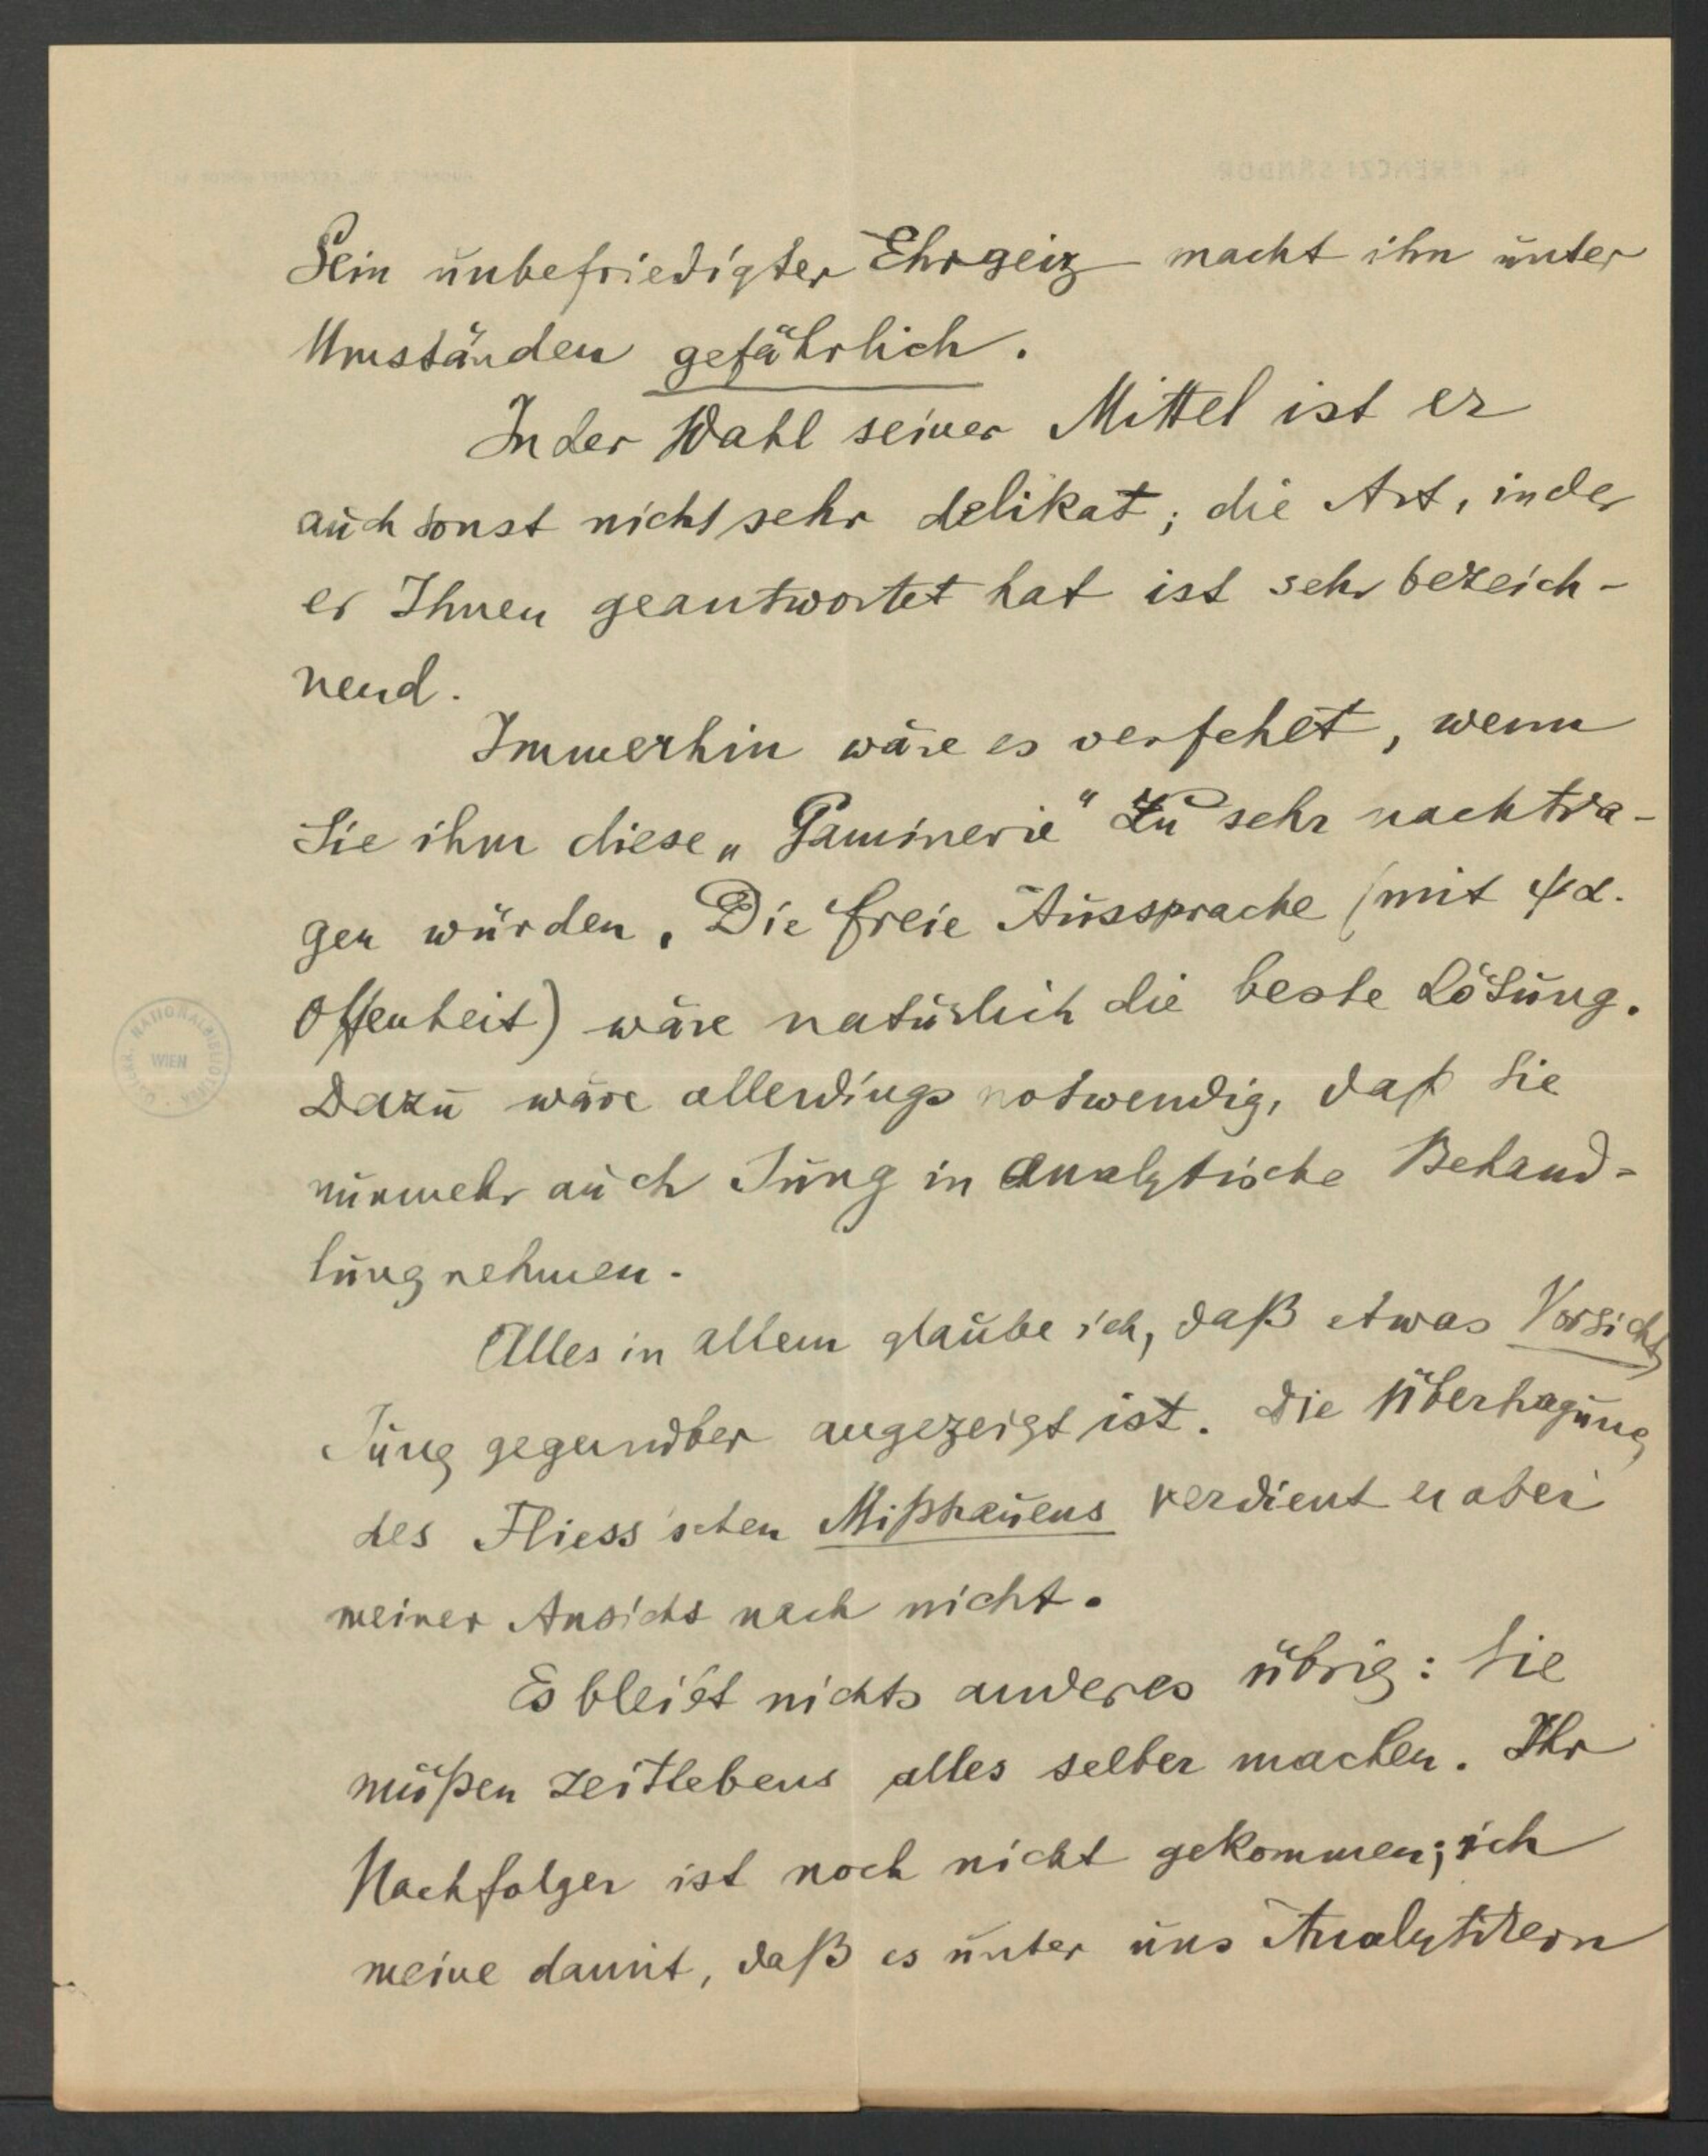 Sein unbefriedigter Ehrgeiz macht ihn unter
Umständen gefährlich.
In der Wahl seiner Mittel ist er
auch sonst nicht sehr delikat; die Art, in der
er Ihnen geantwortet hat ist sehr bezeich-
nend.
Immerhin wäre es verfehlt, wenn
Sie ihm diese „Gaminerie“ zu sehr nachtra-
gen würden. Die freie Aussprache (mit ψα.
Offenheit) wäre natürlich die beste Lösung.
Dazu wäre allerdings notwendig, daß Sie
nunmehr auch Jung in analytische Behand-
lung nehmen.
Alles in allem glaube ich, daß etwas Vorsicht
Jung gegenüber angezeigt ist. Die Übertragung
des Fliess'schen Mißtrauens verdient er aber
meiner Ansicht nach nicht.
Es bleibt nichts anderes übrig: Sie
müßen zeitlebens alles selber machen. Ihr
Nachfolger ist noch nicht gekommen; ich
meine damit, daß es unter uns Analytikern
ŒSTERR. NATIONALBIBLIOTHEK
WIEN
DR FERENCZI SÁNDOR